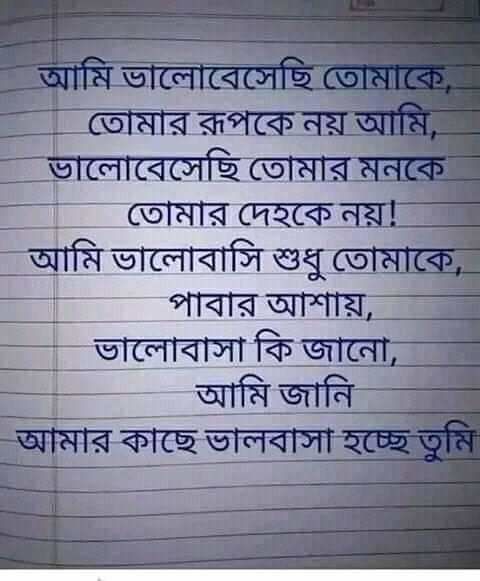 আমি ভালোবেসেছি তোমাকে,
তোমার রূপকে নয় আমি,
ভালোবেসেছি তোমার মনকে
তোমার দেহকে নয়!
আমি ভালোবাসি শুধু তোমাকে,
পাবার আশায়,
ভালোবাসা কি জানো,
আমি জানি
আমার কাছে ভালবাসা হচ্ছে তুমি